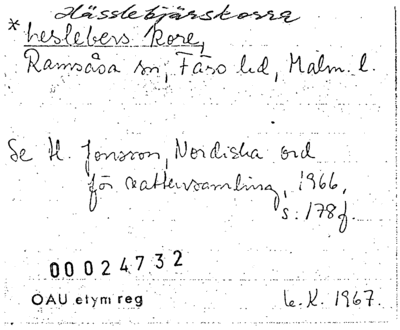 Hässlebjärskorra
* heslebers kore,
Ramsåsa sn, Färs hd, Malm. l.
Se H. Jonsson, Nordiska ord
för vattensamling, 1966,
s. 178f.
00024732
OAU etym reg
L. K. 1967.